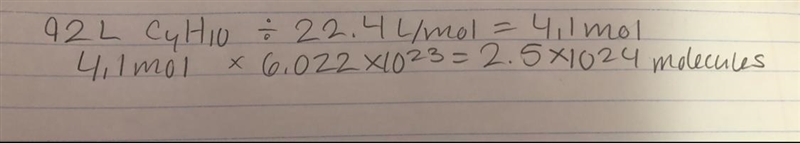 92L C4H10 ÷ 22.4 L/mol = 4.1 mol
4.1 mol × 6.022×10²³ = 2.5×10²⁴ molecules